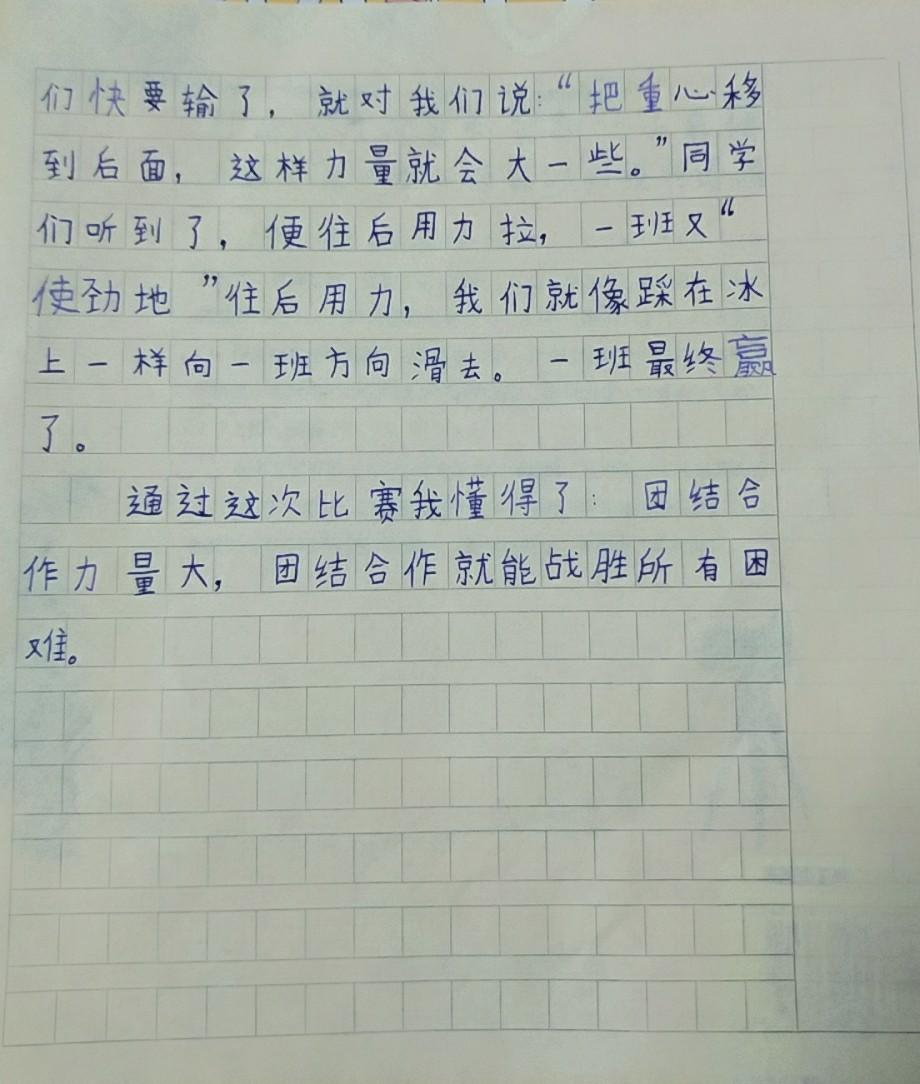 们快要输了，就对我们说：“把重心移
到后面，这样力量就会大一些。”同学
们听到了，便往后用力拉，一班又“
使劲地”往后用力，我们就像踩在冰
上一样向一班方向滑去。一班最终赢
了。
通过这次比赛我懂得了：团结合
作力量大，团结合作就能战胜所有困
难。